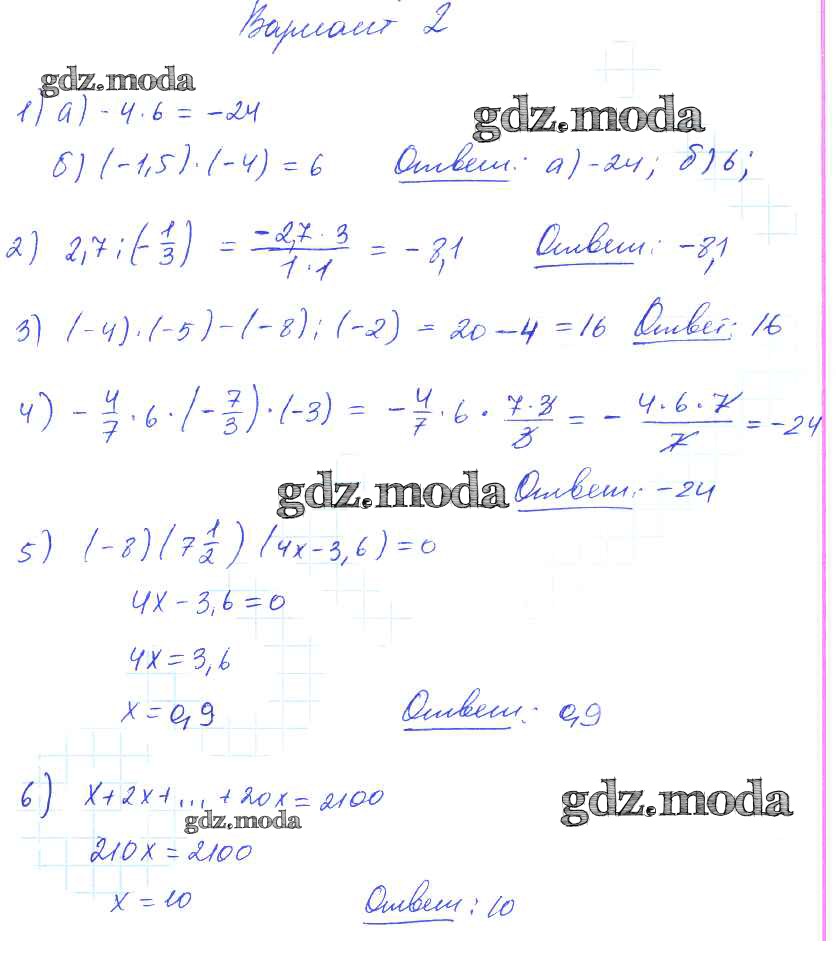 Вариант 2
gdz.moda
1) а) - 4 · 6 = -24
gdz.moda
б) (-1,5) · (-4) = 6 Ответ: а) -24; б) 6;
2) 2,7 : (- 1/3) = -2,7 · 3 / 1 · 1 = - 8,1 Ответ: -8,1
3) (-4) · (-5) - (-8) : (-2) = 20 - 4 = 16 Ответ: 16
4) - 4/7 · 6 · (- 7/3) · (-3) = - 4/7 · 6 · 7 · 3 / 3 = - 4 · 6 · 7 / 7 = -24
gdz.moda Ответ: -24
5) (-8) (7 1/2) (4x - 3,6) = 0
4x - 3,6 = 0
4x = 3,6
x = 0,9 Ответ: 0,9
6) x + 2x + ... + 20x = 2100
gdz.moda
gdz.moda
210x = 2100
x = 10 Ответ: 10